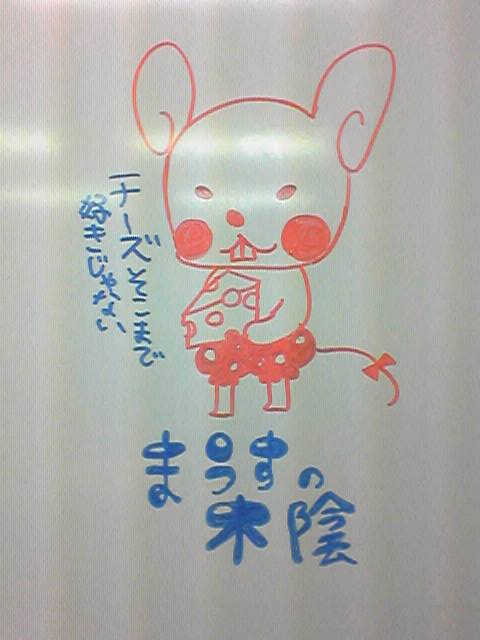 チーズそこまで
好きじゃない
まうすの
米陰